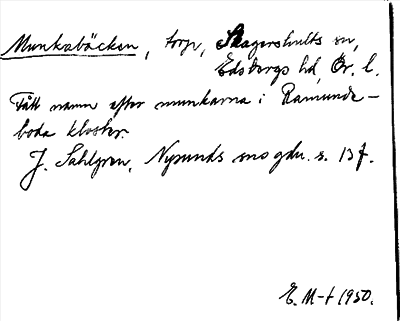 Munkabäcken, torp, Skagershults sn,
Edsbergs hd, Ör. l.
Fått namn efter munkarna i Ramunda-
boda kloster.
J. Sahlgren, Nysunds sns gdn. s. 13 f.
E. M-t 1950.